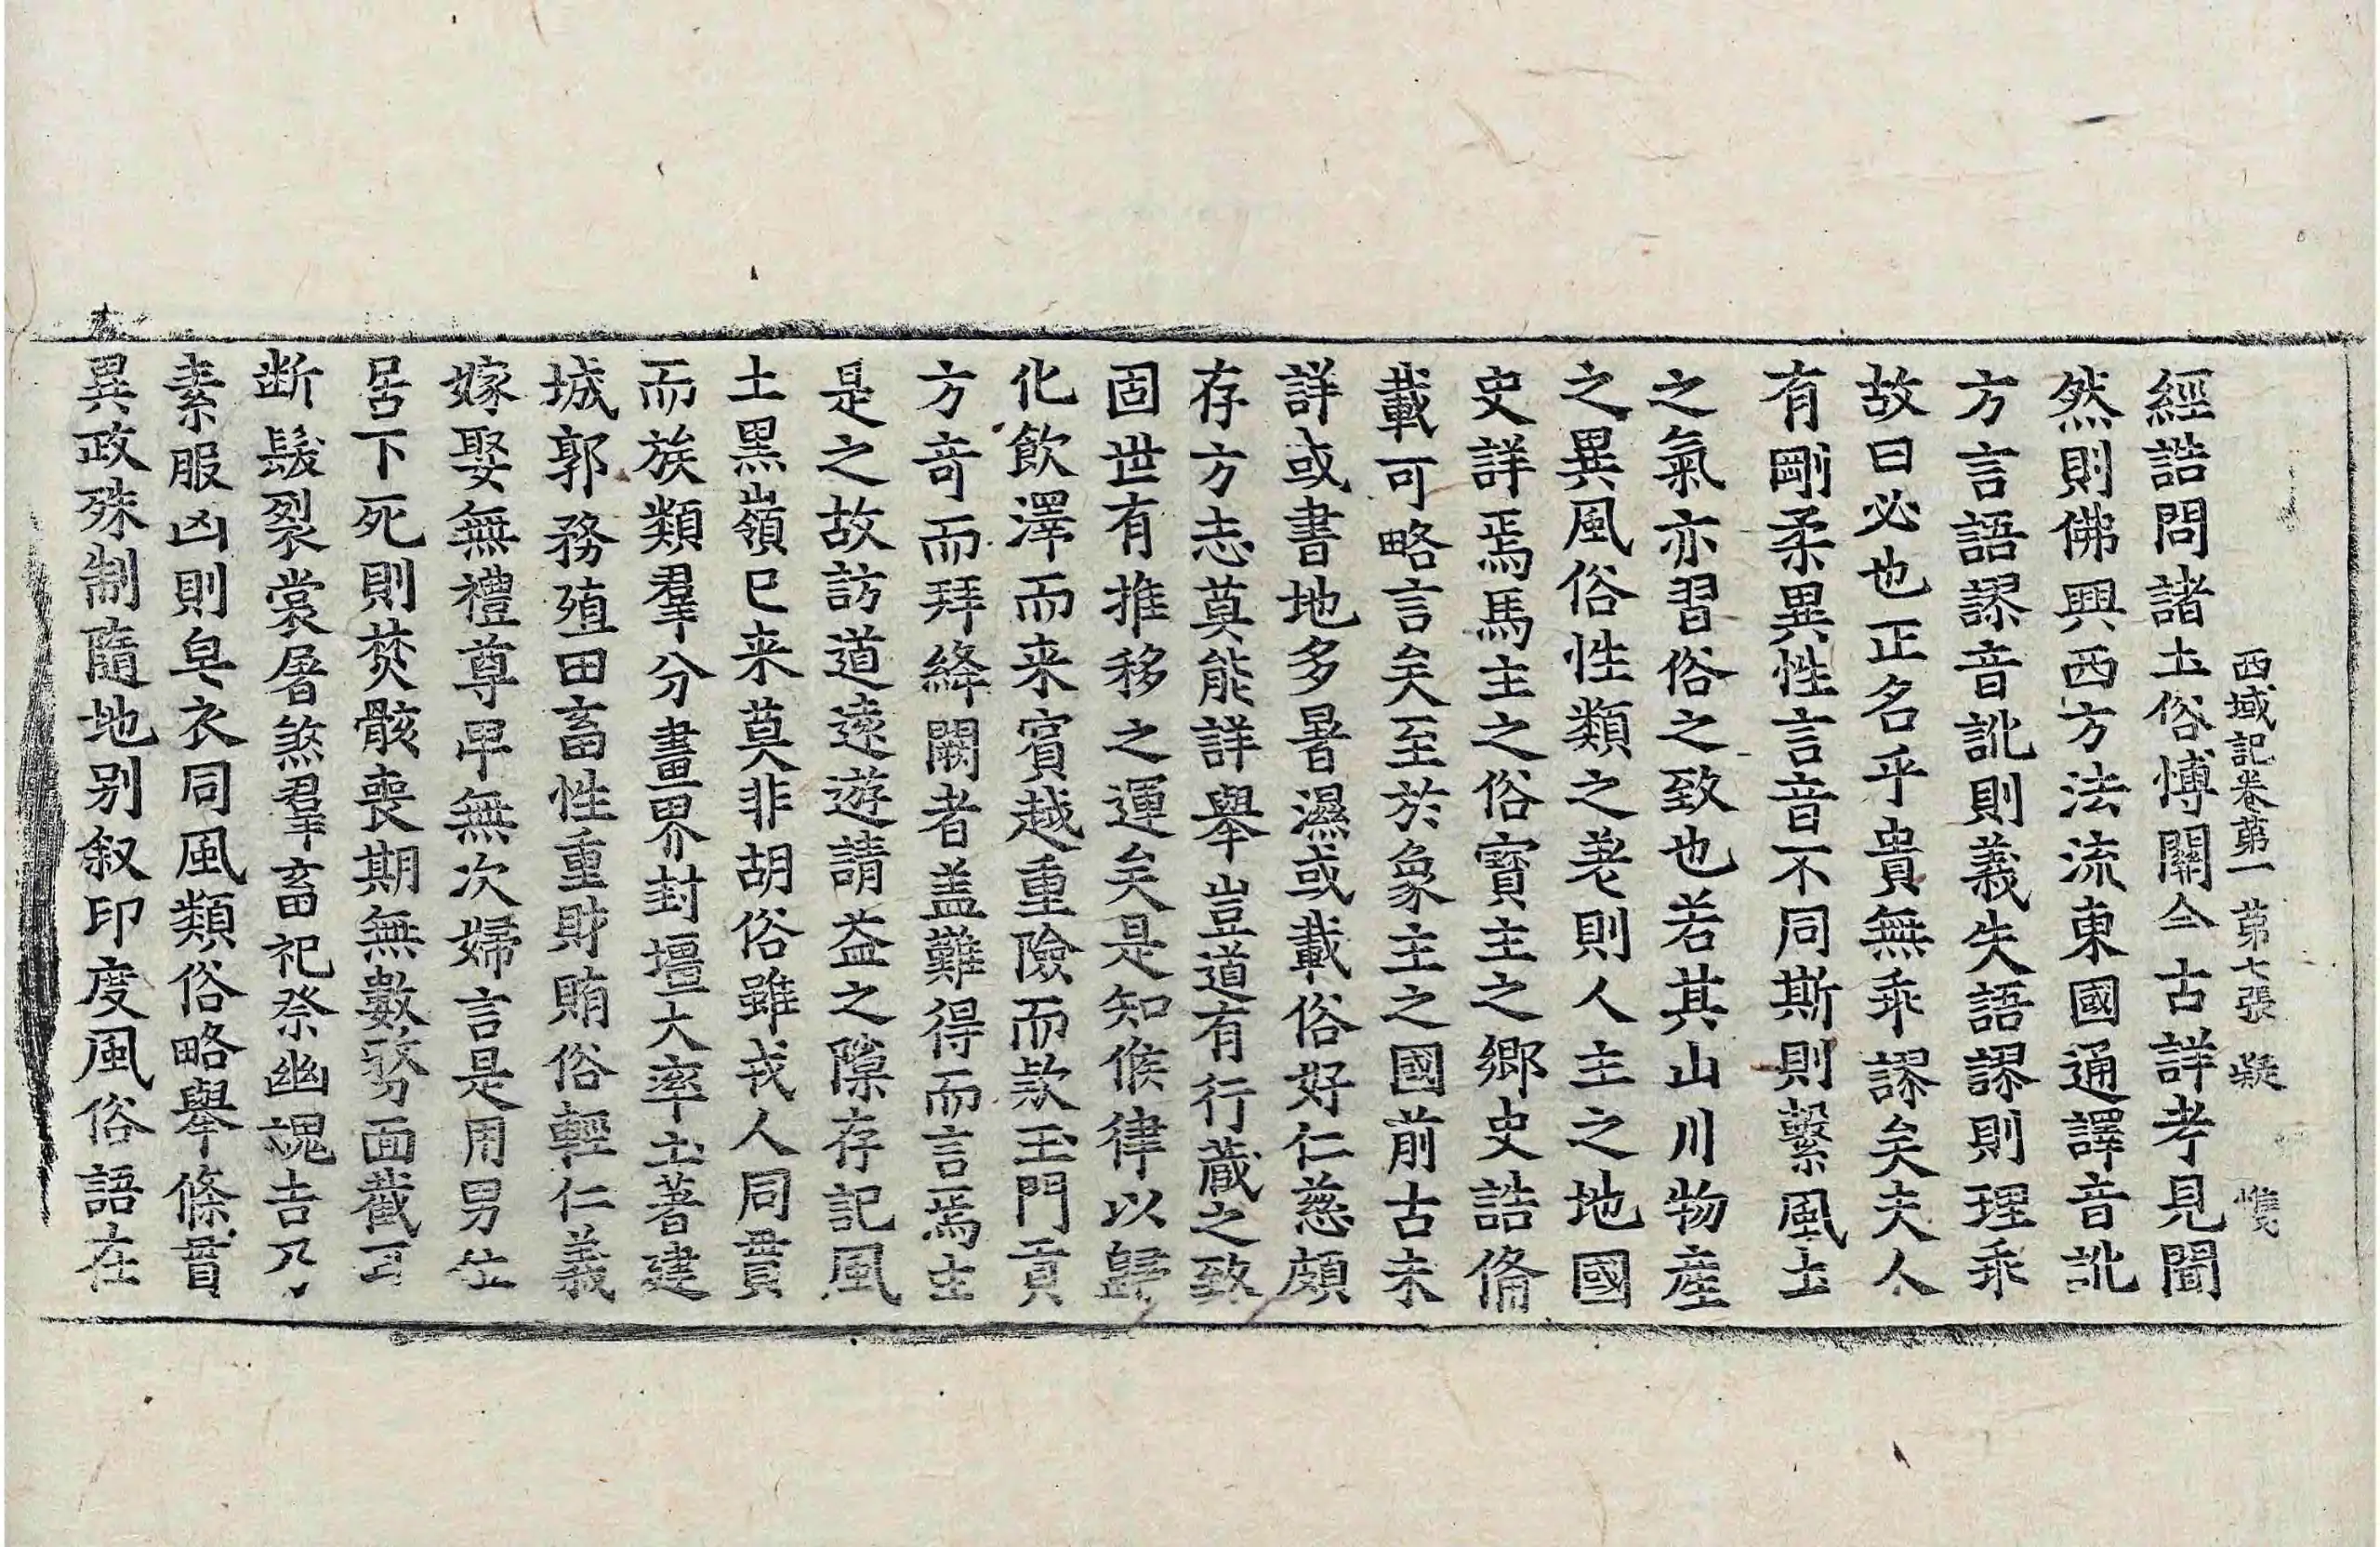 西域記卷第一 第七張 凝
經誥問諸土俗博關今古詳考見聞
然則佛興西方法流東國通譯音訛
方言語謬音訛則義失語謬則理乖
故曰必也正名乎貴無乖謬矣夫人
有剛柔異性言音不同斯則繫風土
之氣亦習俗之致也若其山川物産
之異風俗性類之差則人主之地國
史詳焉馬主之俗寶主之鄉史誥俻
載可略言矣至於象主之國前古未
詳或書地多暑濕或載俗好仁慈頗
存方志莫能詳舉豈道有行藏之致
固世有推移之運矣是知候律以歸
化飲澤而来賓越重險而款玉門貢
方竒而拜絳闕者盖難得而言焉由
是之故訪道遠遊請益之隙存記風
土黒嶺已来莫非胡俗雖戎人同貫
而族類羣分畫界封壃大率土著建
城郭務殖田畜性重財賄俗輕仁義
嫁娶無禮尊卑無次婦言是用男位
居下死則焚骸喪期無數剺面截耳
断髮裂裳屠煞羣畜祀祭幽魂吉乃
素服凶則皁衣同風類俗略舉條貫
異政殊制隨地别叙印度風俗語在